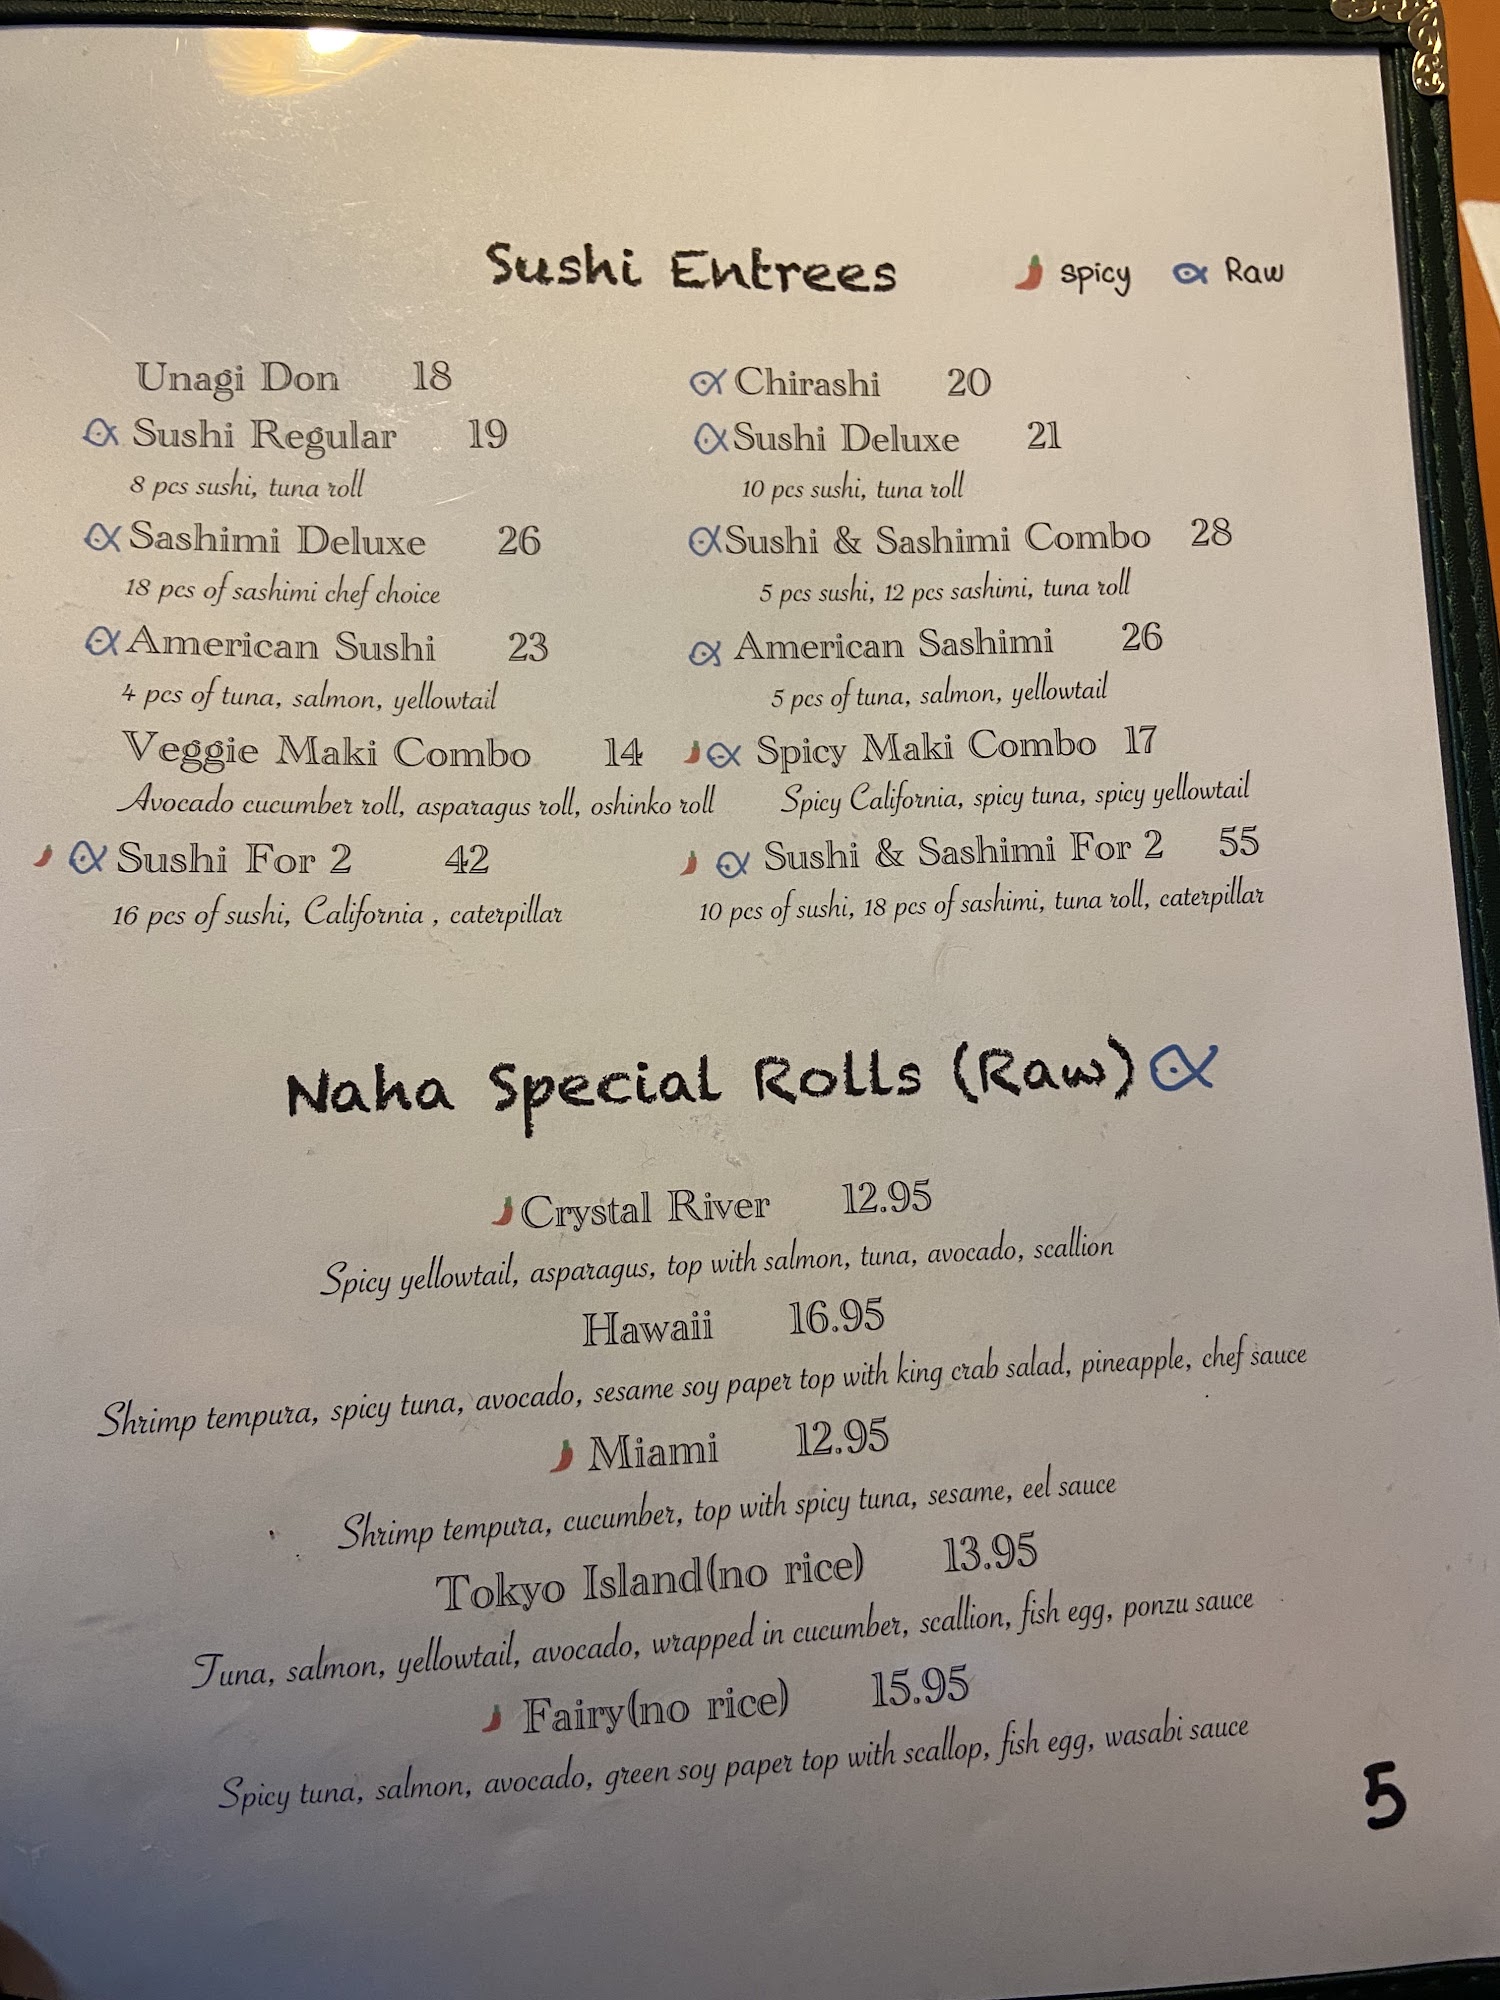 Sushi Entrees spicy Raw
Unagi Don 18
Chirashi 20
Sushi Regular 19
8 pcs sushi, tuna roll
Sushi Deluxe 21
10 pcs sushi, tuna roll
Sashimi Deluxe 26
18 pcs of sashimi chef choice
Sushi & Sashimi Combo 28
5 pcs sushi, 12 pcs sashimi, tuna roll
American Sushi 23
4 pcs of tuna, salmon, yellowtail
American Sashimi 26
5 pcs of tuna, salmon, yellowtail
Veggie Maki Combo 14
Avocado cucumber roll, asparagus roll, oshinko roll
Spicy Maki Combo 17
Spicy California, spicy tuna, spicy yellowtail
Sushi For 2 42
16 pcs of sushi, California , caterpillar
Sushi & Sashimi For 2 55
10 pcs of sushi, 18 pcs of sashimi, tuna roll, caterpillar
Naha Special Rolls (Raw)
Crystal River 12.95
Spicy yellowtail, asparagus, top with salmon, tuna, avocado, scallion
Hawaii 16.95
Shrimp tempura, spicy tuna, avocado, sesame soy paper top with king crab salad, pineapple, chef sauce
Miami 12.95
Shrimp tempura, cucumber, top with spicy tuna, sesame, eel sauce
Tokyo Island(no rice) 13.95
Tuna, salmon, yellowtail, avocado, wrapped in cucumber, scallion, fish egg, ponzu sauce
Fairy(no rice) 15.95
Spicy tuna, salmon, avocado, green soy paper top with scallop, fish egg, wasabi sauce
5